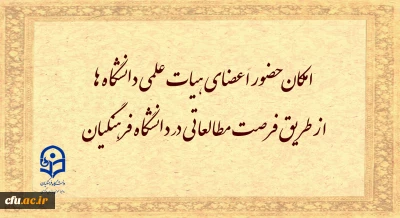 امکان حضور اعضای هیات علمی دانشگاه ها
از طریق فرصت مطالعاتی در دانشگاه فرهنگیان
دانشگاه فرهنگیان
cfu.ac.ir